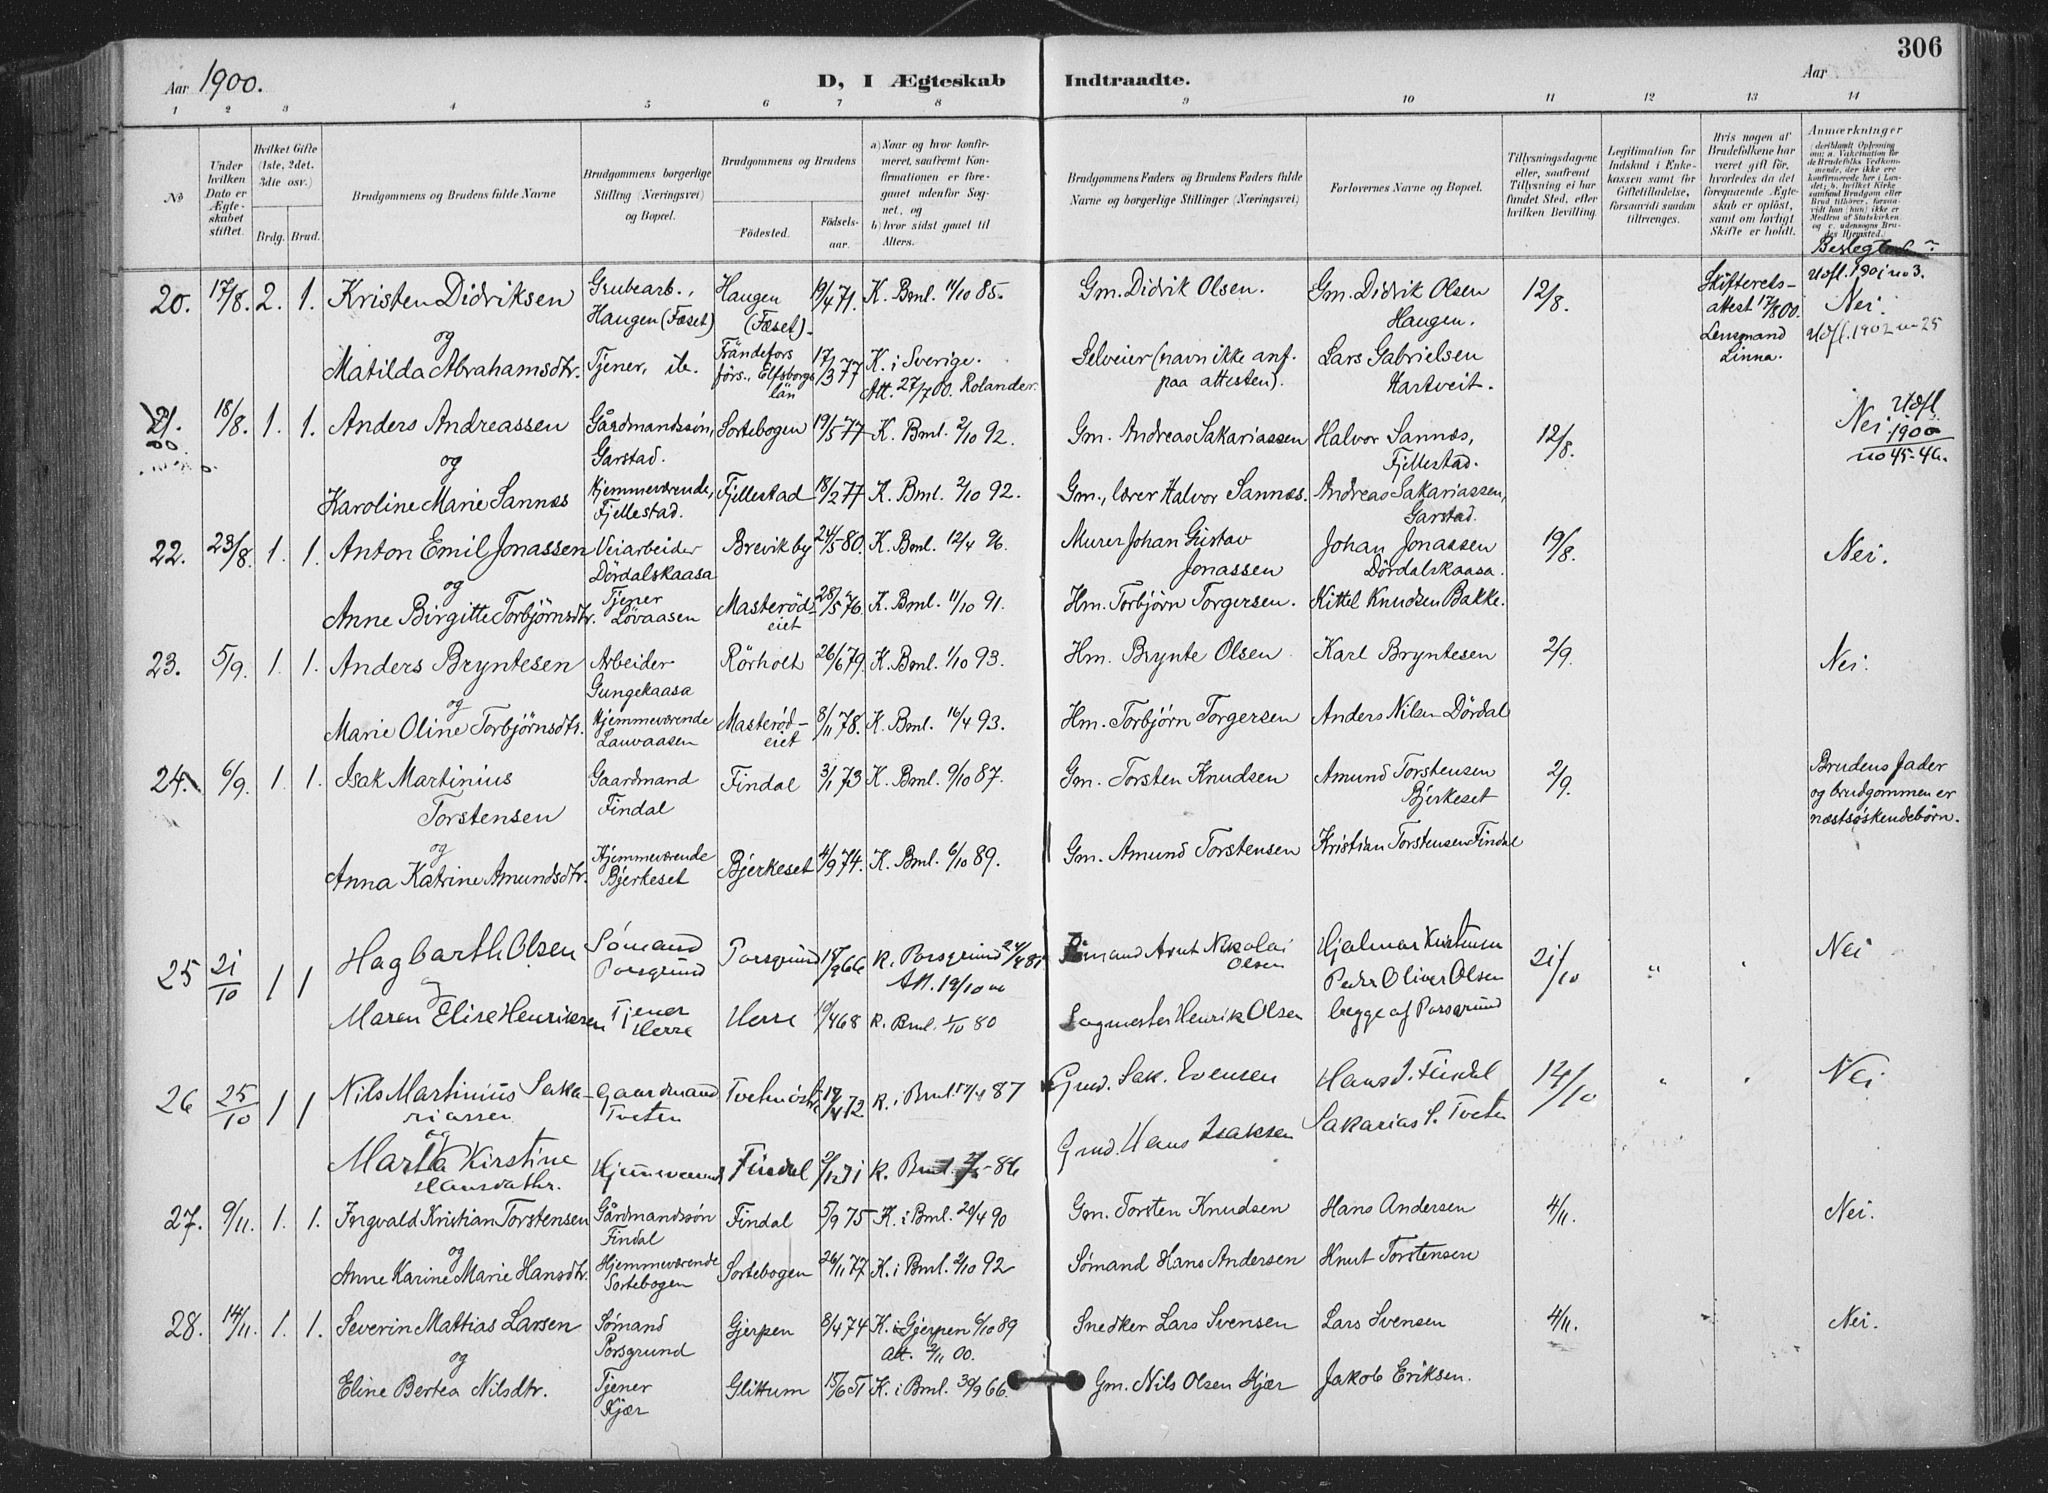 306
Aar 1900.
D, I Ægteskab Indtraadte.
Aar
1 2 3 4 5 6 7 8 9 10 11 12 13 14
No
Under hvilken Dato er Ægteskabet stiftet.
Hvilket Gifte (1ste, 2det, 3die osv.)
Brdg. Brud.
Brudgommens og Brudens fulde Navne
Brudgommens borgerlige Stilling (Næringsvei) og Bopæl.
Brudgommens og Brudens
Födested. Födselsaar.
a) Naar og hvor konfirmeret, saafremt Konfirmationen er foregaaet udenfor Sognet, og
b) hvor sidst gaaet til Alters.
Brudgommens Faders og Brudens Faders fulde Navne og borgerlige Stillinger (Næringsvei)
Forlovernes Navne og Bopæl.
Tillysningsdagene eller, saafremt Tillysning ei har fundet Sted, efter hvilken Bevilling.
Legitimation for Indskud i Enkekassen samt for Giftetilladelse, forsaavidt saadan tiltrænges.
Hvis nogen af Brudefolkene har været gift för, hvorledes da det foregaaende Ægteskab er oplöst, samt om lovligt Skifte er holdt.
Anmærkninger (deriblandt Oplysning om: a. Vakcination for de Brudefolks Vedkommende, der ikke ere konfirmerede her i Landet; b. hvilket Kirkesamfund Brudgom eller Brud tilhörer, forsaavidt han (hun) ikke er Medlem af Statskirken, og c. udensogns Brudes Hjemsted.)
20. 17/8. 2. 1. Kristen Didriksen Grubearb., Haugen (Fæset) Haugen (Fæset). 19/4 71. K. Bml. 11/10 85. Gm. Didrik Olsen. Gm. Didrik Olsen Haugen. 12/8. Skifterets-attest 17/8 00. Lensmand Linna. Udfl. 1901 no 3. Nei. Udfl. 1902 no 25
og
Matilda Abrahamsdtr. Tjener, ib. Frändefors förs., Elfsborgs län 17/3 77 K. i Sverige. Att. 27/7 00. Rolander. Selveier (navn ikke anf. paa attesten). Lars Gabrielsen Hartveit.
21. 18/8. 1. 1. Anders Andreassen Gårdmandssøn, Garstad. Sortebogen 19/5 77 K. Bml. 2/10 92. Gm. Andreas Sakariassen Halvor Sannæs, Fjellestad. 12/8. Nei. Udfl 1900 no 45-46.
og
Karoline Marie Sannæs Hjemmeværende, Fjellestad. Fjellestad 18/2 77 K. Bml. 2/10 92. Gm., lærer Halvor Sannæs. Andreas Sakariassen, Garstad.
22. 23/8. 1. 1. Anton Emil Jonassen Veiarbeider Dördalskaasa Brevik by 24/5 80. K. Bml. 12/4 96. Murer Johan Gustav Jonassen Johan Jonassen Dördalskaasa. 19/8. Nei.
og
Anne Birgitte Torbjørnsdtr. Tjener Lövaasen Masterödeiet 28/5 76. K. Bml. 11/10 91. Hm. Torbjørn Torgersen. Kittel Knudsen Bakke.
23. 5/9. 1. 1. Anders Bryntesen Arbeider Gungekaasa Rörholt 26/6 79. K. Bml. 1/10 93. Hm. Brynte Olsen Karl Bryntesen 2/9. Nei.
og
Marie Oline Torbjørnsdtr. Hjemmeværende Lauvaasen Masteröd-eiet 8/11 78. K. Bml. 16/4 93. Hm. Torbjörn Torgersen Anders Nilsen Dördal
24. 6/9. 1. 1. Isak Martinius Torstensen Gaardmand Findal Findal 3/1 73 K. Bml. 9/10 87. Gm. Torsten Knudsen Amund Torstensen Bjerkeset 2/9. Brudens fader og brudgommen er næstsøskendebörn.
og
Anna Katrine Amundsdtr. Hjemmeværende Bjerkeset Bjerkeset 4/9 74. K. Bml. 6/10 89. Gm. Amund Torstensen Kristian Torstensen Findal
25 21/10 1 1 Hagbarth Olsen Sømand Porsgrund Porsgrund 18/9 66 K. Porsgrund Att. 19/10 00 Sømand Arnt Nikolai Olsen Hjalmar Kristensen Peder Oliver Olsen 21/10 " " Nei
og
Maren Elise Henriksen Tjener Herre Herre 10/4 68 K. Bml. 80 Sagmester Henrik Olsen begge af Porsgrund
26 25/10 1 1 Nils Martinius Sakariassen Gaardmand Tveten 4 72 K. i Bml. 17/4 87 Grmd. Sak. Evensen Hans I. Findal 14/10 " " Nei
og
Marta Kirstine Hansdatter. Hjemmeværend Findal K. Bml. 86 Grmd. Hans Isaksen Sakarias S. Tveten
27. 9/11. 1. 1. Ingvald Kristian Torstensen Gårdmandssøn Findal Findal 5/9 75 K. i Bml. 20/4 90 Gm. Torsten Knudsen Hans Andersen 4/11. Nei.
og
Anne Karine Marie Hansdtr. Hjemmeværende Sortebogen Sortebogen 26/11 77 K. i Bml. 2/10 92 Sømand Hans Andersen Knut Torstensen
28. 14/11. 1. 1. Severin Mattias Larsen Sømand Porsgrund Gjerpen 8/4 74 K. i Gjerpen 6/10 89 Att. 2/11 00. Snedker Lars Svensen Lars Svensen 4/11. Nei.
og
Eline Bertea Nilsdtr. Tjener Kjær Glittum 15/6 51 K. i Bml. 30/9 66. Gm. Nils Olsen Kjær Jakob Eriksen.